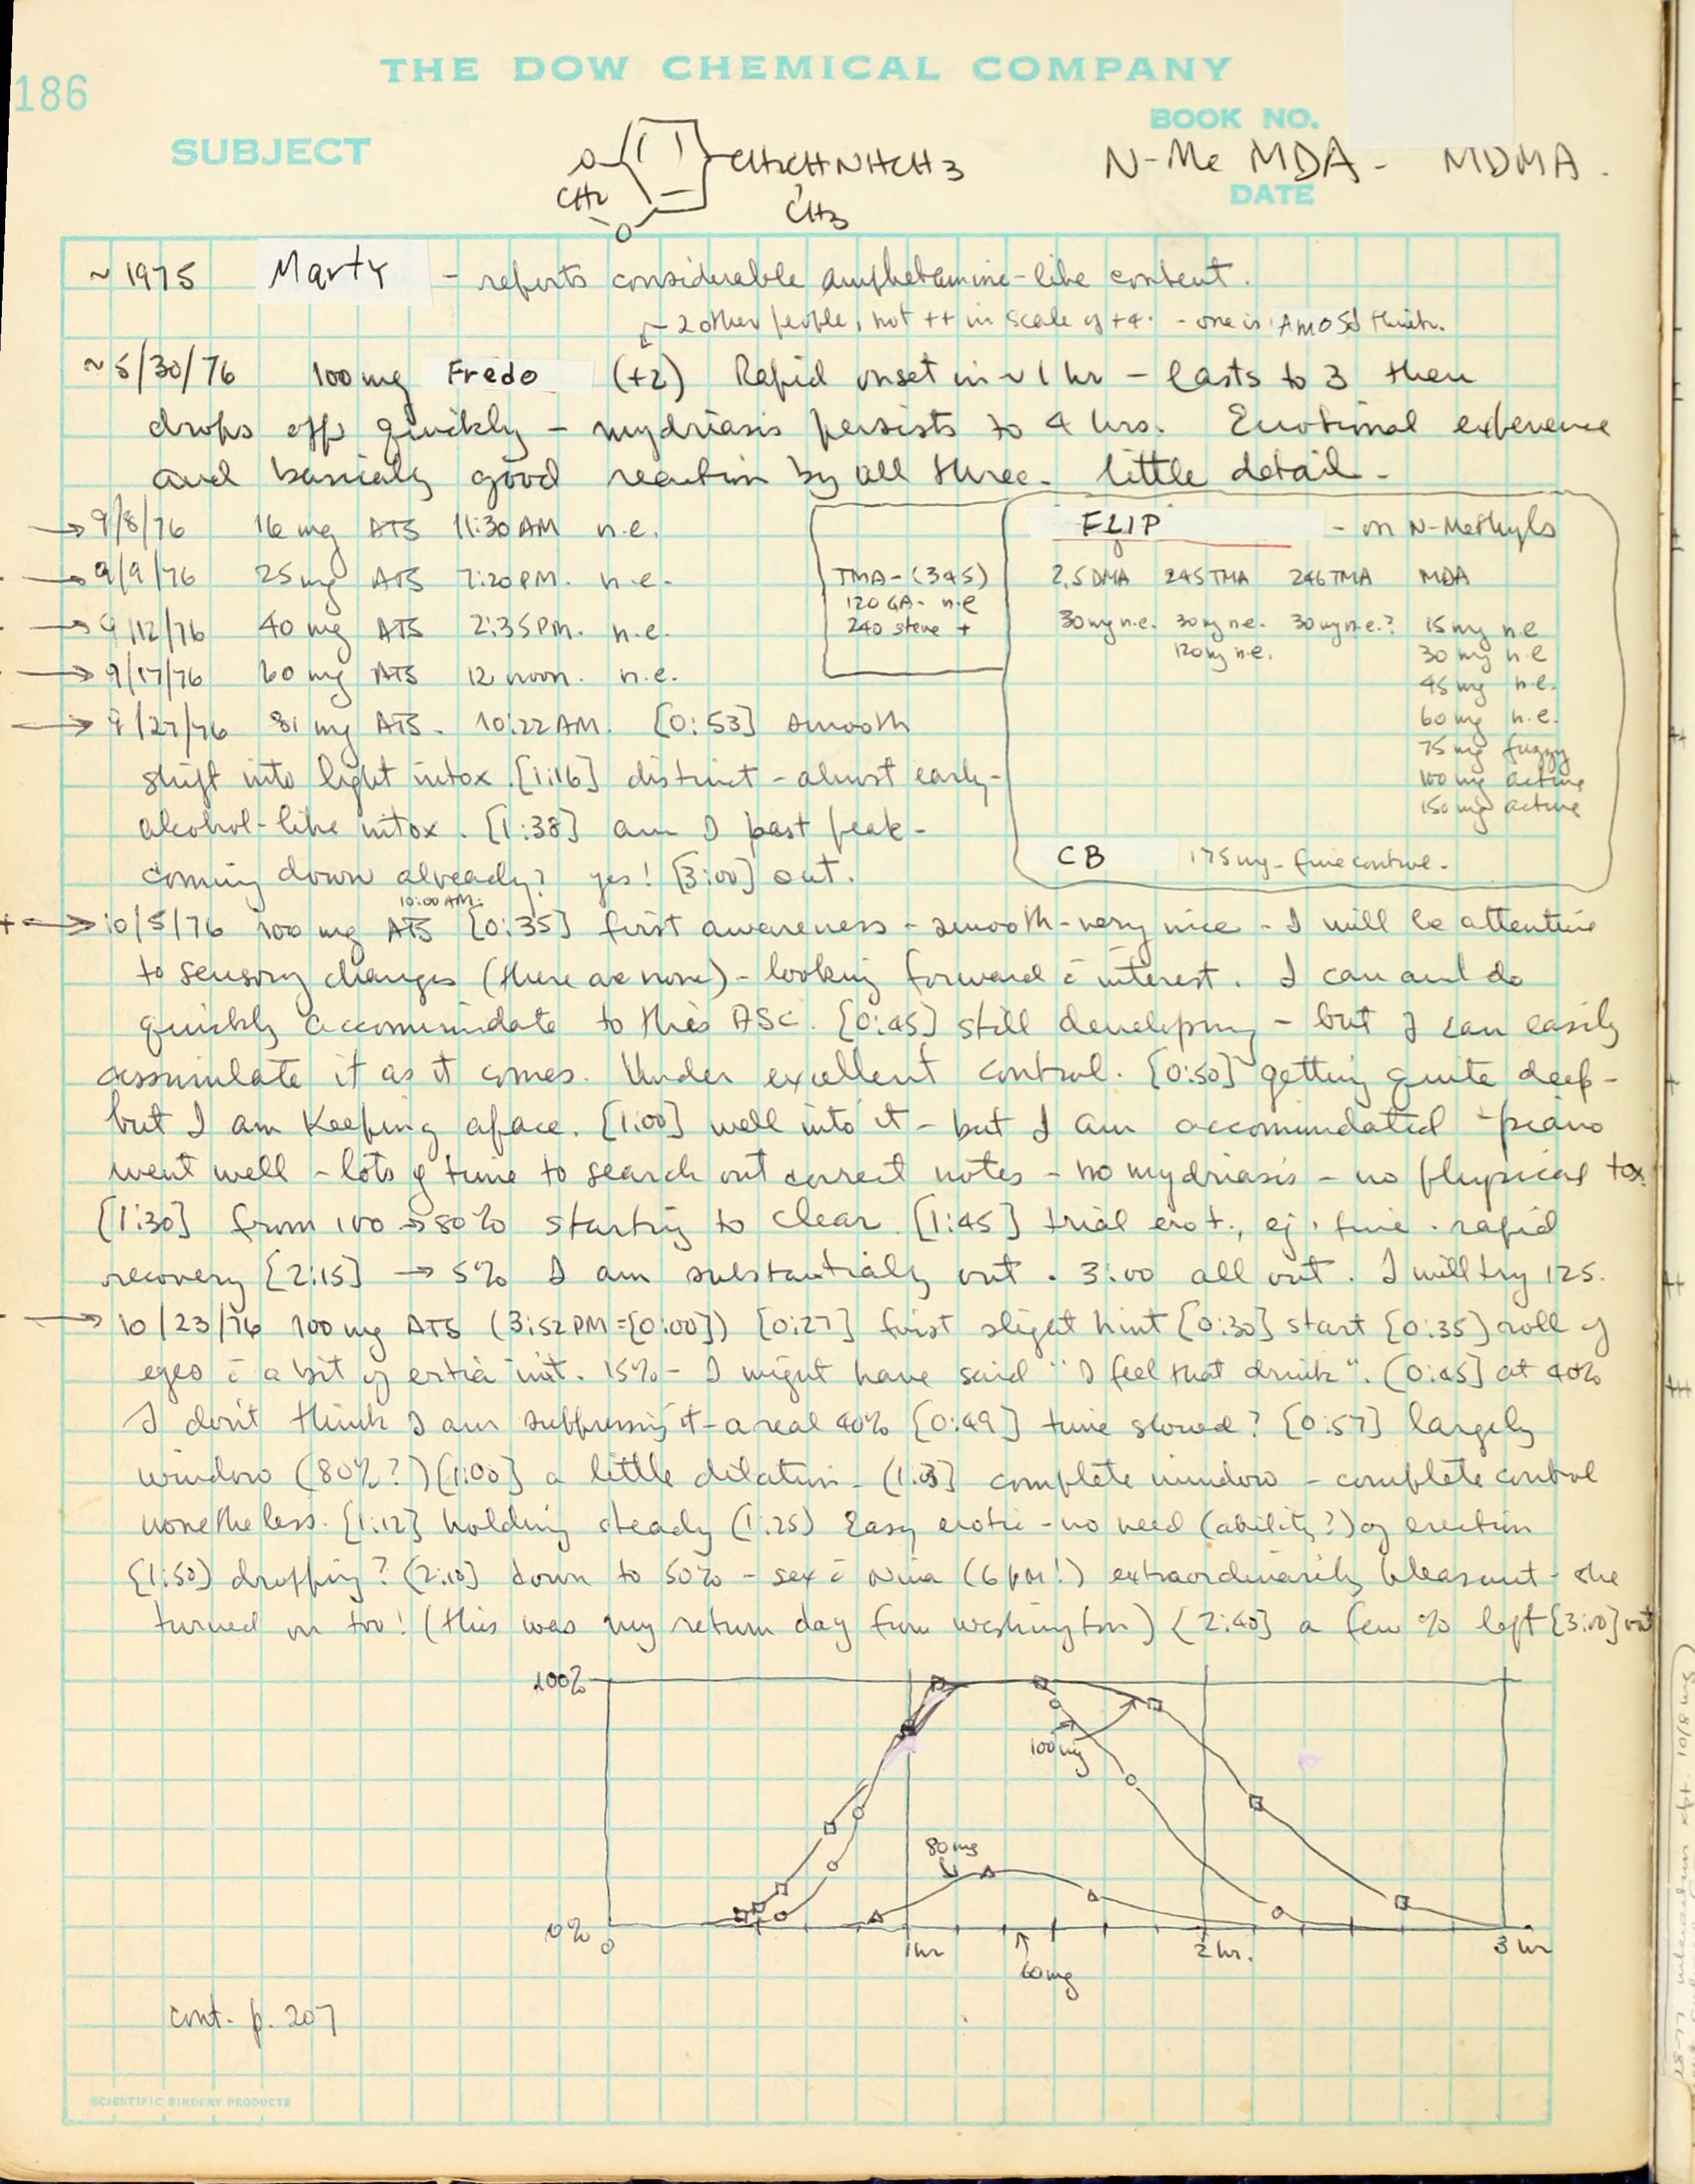 THE DOW CHEMICAL COMPANY
186
BOOK NO.
SUBJECT
N-Me MDA - MDMA.
DATE
O CH2CHNHCH3
CH2 CH3
O
~1975 Marty - reports considerable amphetamine-like content.
2 other people, not ++ in scale of +4. - one is AMOS I think.
~5/30/76 100mg Fredo (+2) Rapid onset in ~1 hr - lasts to 3 then
drops off quickly - mydriasis persists to 4 hrs. Emotional experience
and basically good reaction by all three. little detail -
→ 9/8/76 16 mg ATS 11:30 AM n.e.
→ 9/9/76 25 mg ATS 7:20 PM. n.e.
→ 9/12/76 40 mg ATS 2:35 PM. n.e.
→ 9/17/76 60 mg ATS 12 noon. n.e.
→ 9/27/76 81 mg ATS. 10:22 AM. [0:53] smooth
shift into light intox. [1:16] distinct - almost early-
alcohol-like intox. [1:38] am I past peak -
coming down already? yes! [3:00] out.
TMA-(345)
120 GA- n.e
240 steve +
FLIP - on N-Methyls
2,5 DMA 245 TMA 246 TMA MDA
30mg n.e. 30mg n.e. 30mg n.e.? 15mg n.e
120mg n.e. 30 mg n.e
45mg n.e.
60mg n.e.
75 mg fuzzy
100 mg active
150 mg active
CB 175mg - fine control.
10:00 AM.
+ → 10/5/76 100 mg ATS [0:35] first awareness - smooth - very nice - I will be attentive
to sensory changes (there are none) - looking forward c̄ interest. I can and do
quickly accommindate to this ASC. [0:45] still developing - but I can easily
assimulate it as it comes. Under excellent control. [0:50] getting quite deep -
but I am keeping apace. [1:00] well into it - but I am accomindated - piano
went well - lots of time to search out correct notes - no mydriasis - no physical tox.
[1:30] from 100 → 80% starting to clear [1:45] trial erot., ej. fine. rapid
recovery [2:15] → 5% I am substantially out. 3:00 all out. I will try 125.
→ 10/23/76 100 mg ATS (3:52 PM = [0:00]) [0:27] first slight hint [0:30] start [0:35] roll of
eyes c̄ a bit of int. 15% - I might have said "I feel that drink". [0:45] at 40%
I don't think I am suppressing it - a real 40% [0:49] time slowed? [0:57] largely
window (80%?) [1:00] a little dilation - [1:03] complete window - complete control
nonetheless. [1:12] holding steady (1:25) Easy erotic - no need (ability?) of erection
[1:50] dropping? (2:10] down to 50% - sex c̄ Nina (6 PM!) extraordinarily pleasant - she
turned on too! (this was my return day from Washington) [2:40] a few % left [3:00] out
100%
100mg
80mg
0%
0 1hr 2 hr. 3 hr
60mg
cont. p. 207
SCIENTIFIC BINDERY PRODUCTS